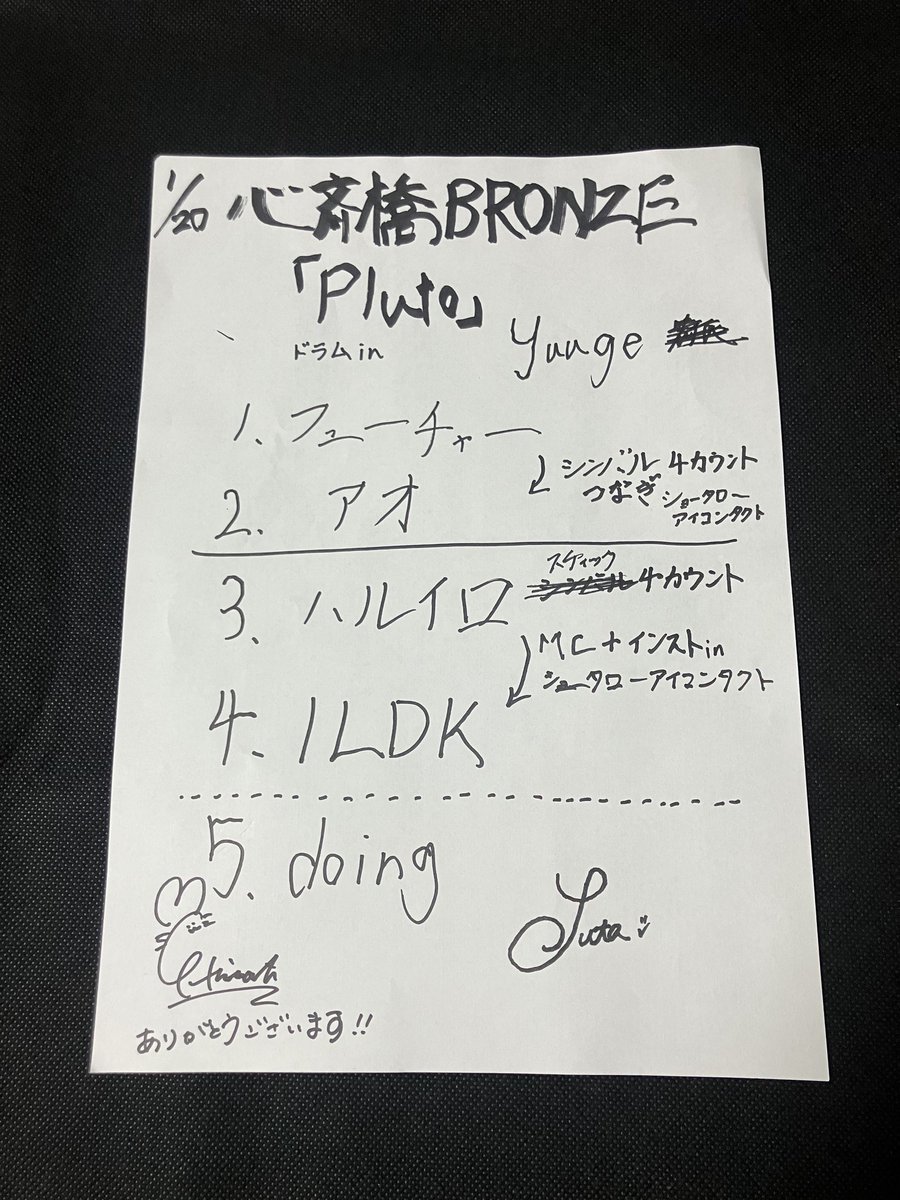 1/20 心斎橋BRONZE
「Pluto」
ドラムin
yuuge
1. フューチャー
シンバル 4カウント
つなぎ ショータロー
アイコンタクト
2. アオ
スティック
3. ハルイロ シンバル 4カウント
MC+インストin
ショータローアイコンタクト
4. 1LDK
5. doing
Yuta
ありがとうございます!!